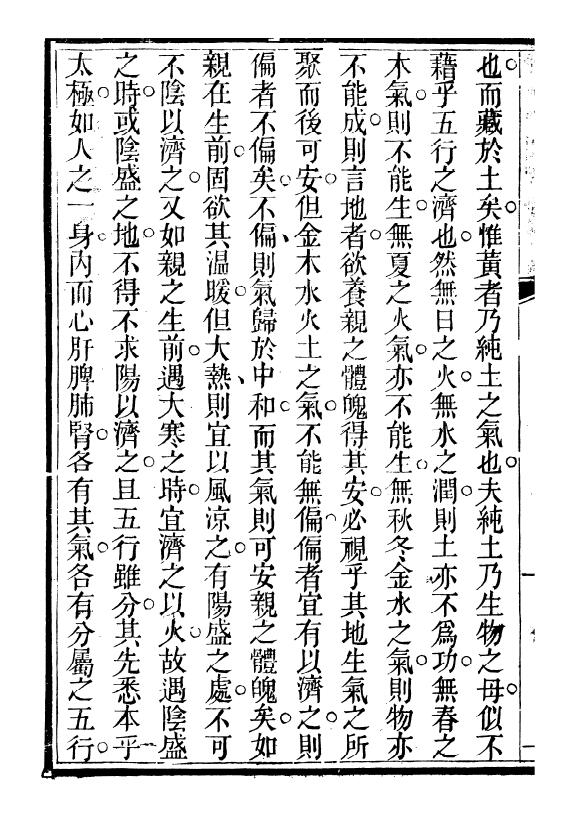 也而藏於土矣惟黃者乃純土之氣也夫純土乃生物之母似不
藉乎五行之濟也然無日之火無水之潤則土亦不爲功無春之
木氣則不能生無夏之火氣亦不能生無秋冬金水之氣則物亦
不能成則言地者欲養親之體魄得其安必視乎其地生氣之所
聚而後可安但金木水火土之氣不能無偏偏者宜有以濟之則
偏者不偏矣不偏則氣歸於中和而其氣則可安親之體魄矣如
親在生前固欲其溫暖但大熱則宜以風涼之有陽盛之處不可
不陰以濟之又如親之生前遇大寒之時宜濟之以火故遇陰盛
之時或陰盛之地不得不求陽以濟之且五行雖分其先悉本乎
太極如人之一身內而心肝脾肺腎各有其氣各有分屬之五行